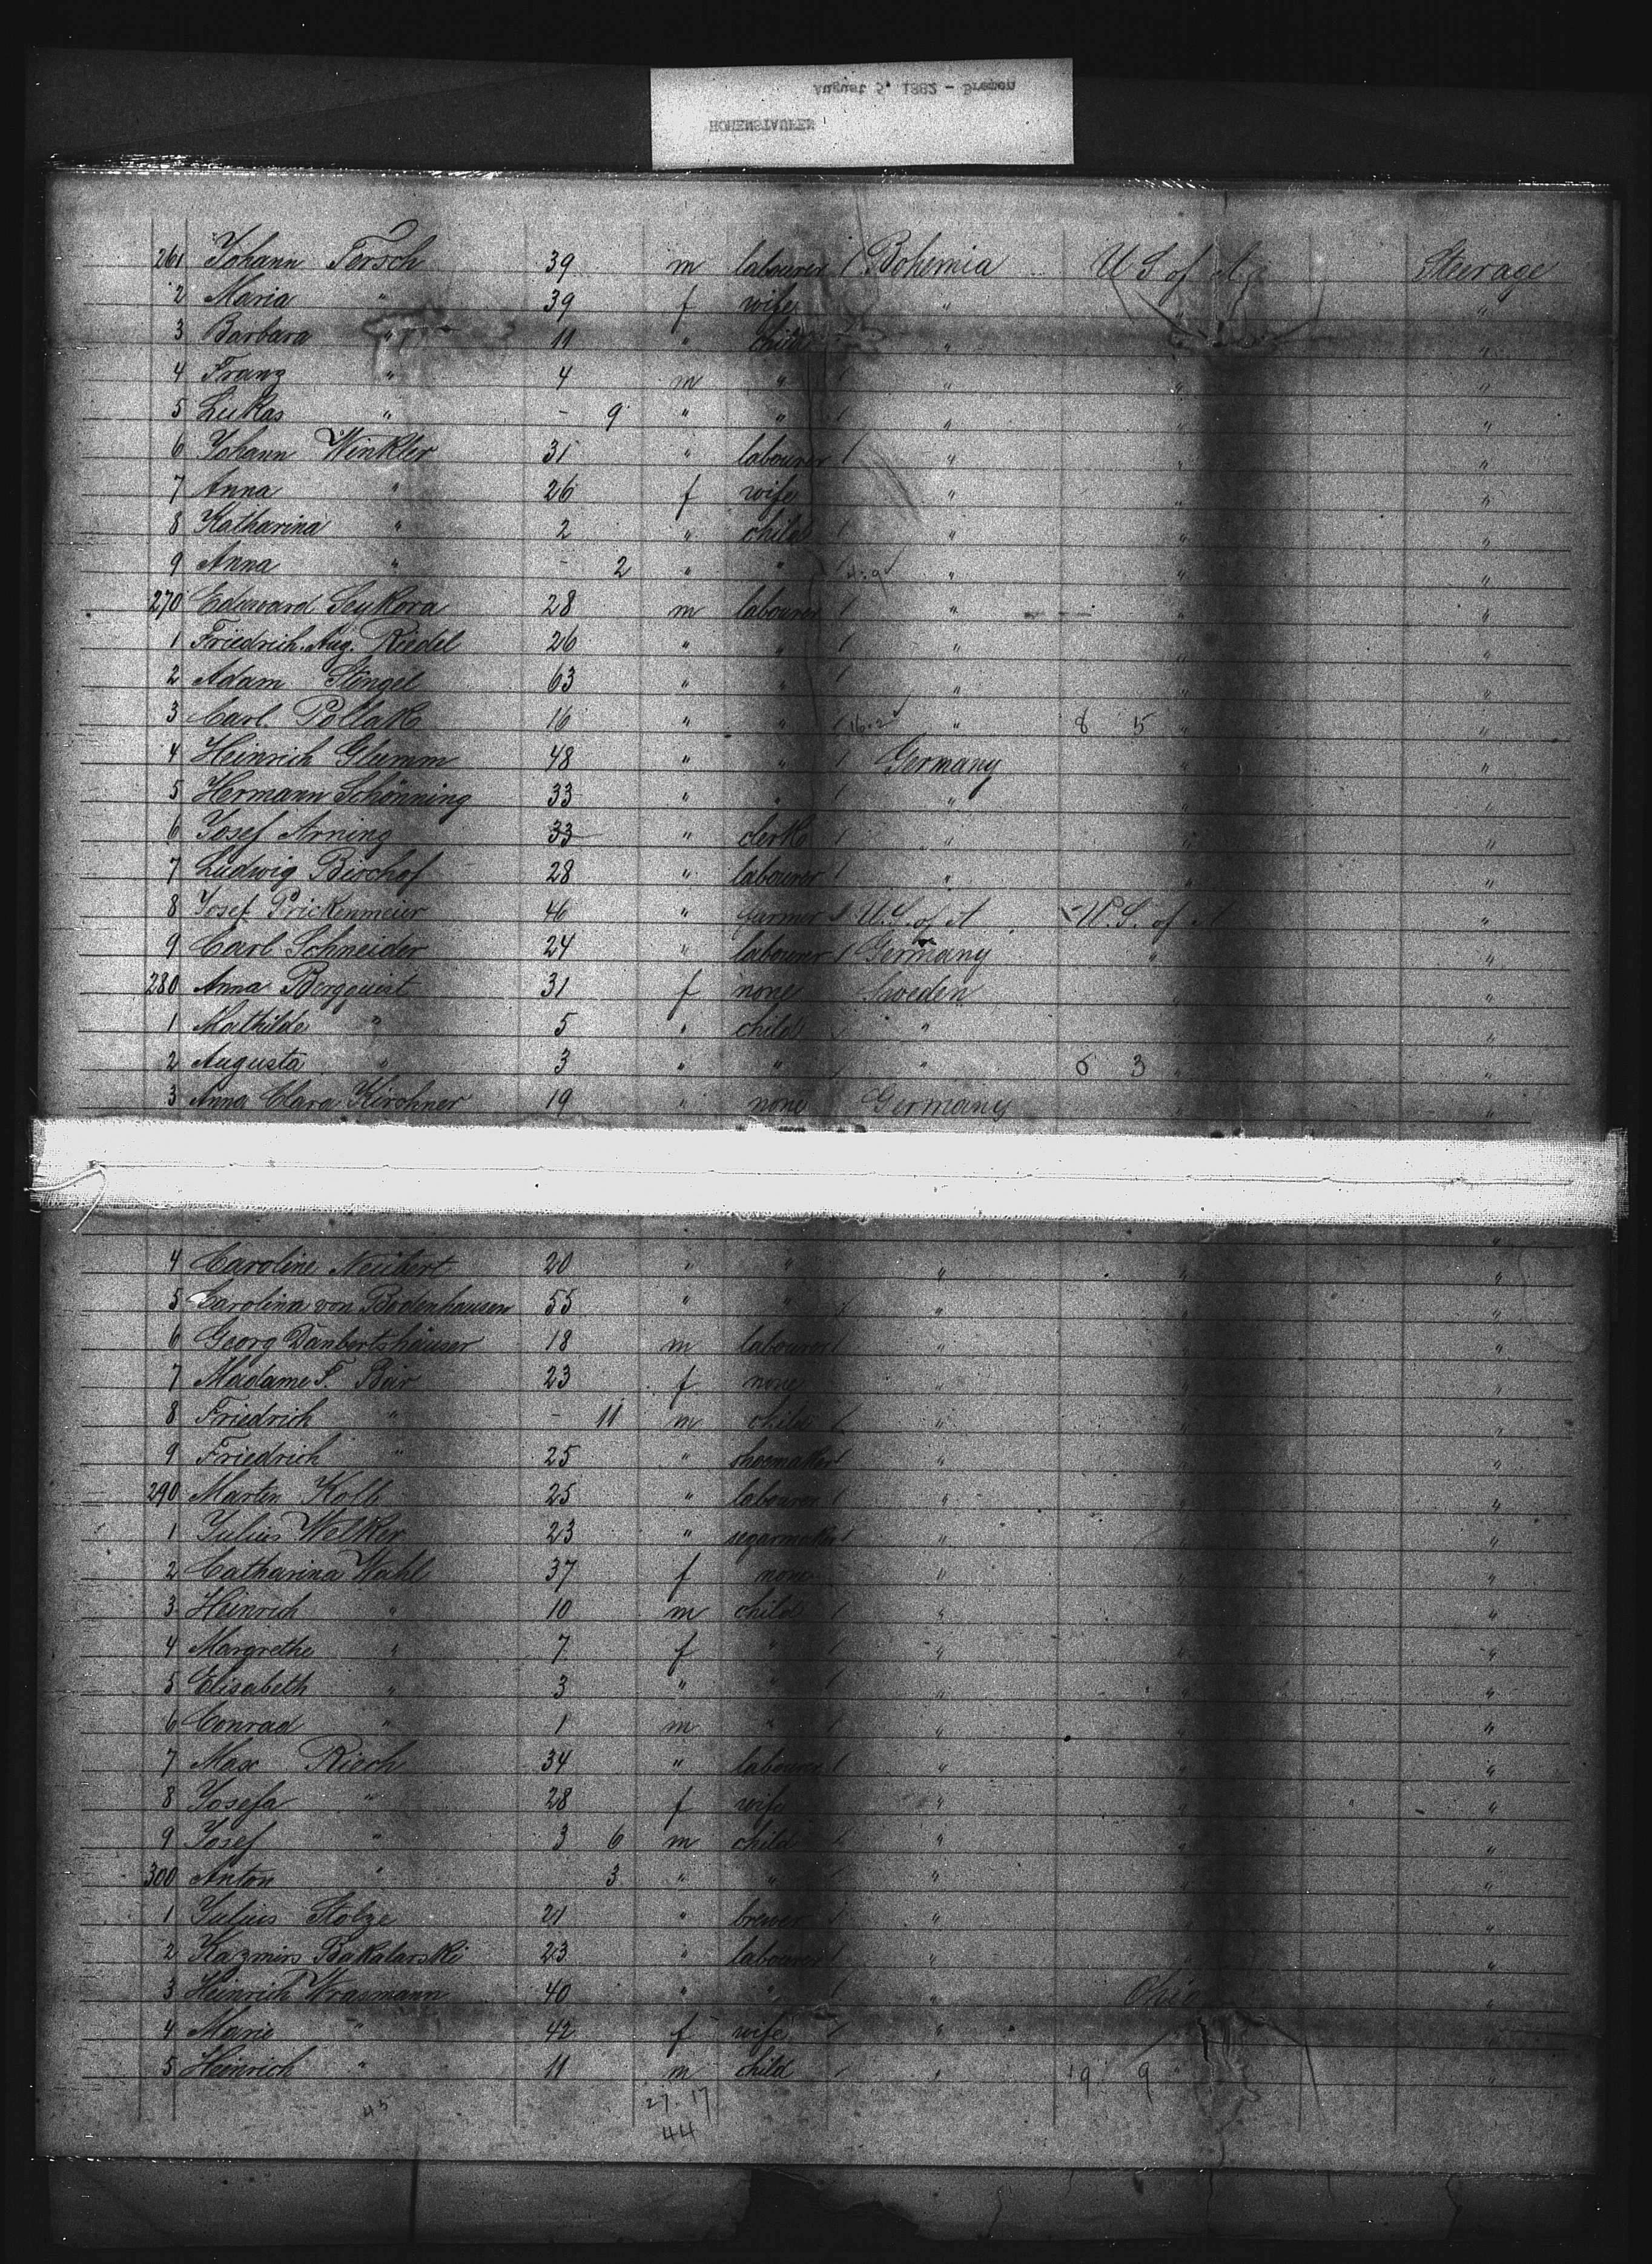 August 5, 1882 - Bremen
HOHENSTAUFEN
261 Johann Tersch 39 m labourer / Bohemia U S of A Steerage
2 Maria " 39 f wife " " "
3 Barbara " 11 " child " "
4 Franz " 4 m " / " " "
5 Lukas " - 9 " " / " " "
6 Johann Winkler 31 " labourer / " " "
7 Anna " 26 f wife " " "
8 Katharina " 2 " child / " " "
9 Anna " - 2 " " / 4.9 " " "
270 Edward 28 m labourer / " " "
1 Friedrich Aug. Riedel 26 " " / " " "
2 Adam Stingel 63 " " / " " "
3 Carl Pollak 16 " " / 16.2 " 8 5 " "
4 Heinrich Glumm 48 " " / Germany " "
5 Hermann Schönning 33 " " / " " "
6 Josef Arning 33 " clerk / " " "
7 Ludwig Bischof 28 " labourer / " " "
8 Josef Prickenmeier 46 " farmer / U.S. of A U.S. of A "
9 Carl Schneider 24 " labourer / Germany " "
280 Anna Bergquist 31 f none Sweden " "
1 Mathilde " 5 " child / " " "
2 Augusta " 3 " " / " 6 3 " "
3 Anna Clara Kirchner 19 " none Germany " "
4 Caroline Neubert 20 " " " " "
5 Carolina von Bodenhausen 55 " " / " " "
6 Georg Danbertshäuser 18 m labourer / " " "
7 Madame F. Bär 23 f none " " "
8 Friedrich " - 11 m child / " " "
9 Friedrich " 25 " shoemaker / " " "
290 Martin Kolb 25 " labourer / " " "
1 Julius Welker 23 " segarmaker / " " "
2 Catharina Wahl 37 f none " " "
3 Heinrich " 10 m child / " " "
4 Margrethe " 7 f " / " " "
5 Elisabeth " 3 " " / " " "
6 Conrad " 1 m " / " " "
7 Max Riech 34 " labourer / " " "
8 Josefa " 28 f wife " " "
9 Josef " 3 6 m child / " " "
300 Anton " 3 " " / " " "
1 Julius Stolze 21 " brewer / " " "
2 Kazmirs Bakalarski 23 " labourer / " " "
3 Heinrich Wrasmann 40 " " / " Ohio "
4 Marie " 42 f wife / " " "
5 Heinrich " 11 m child / " 19 9 " "
45 27.17
44